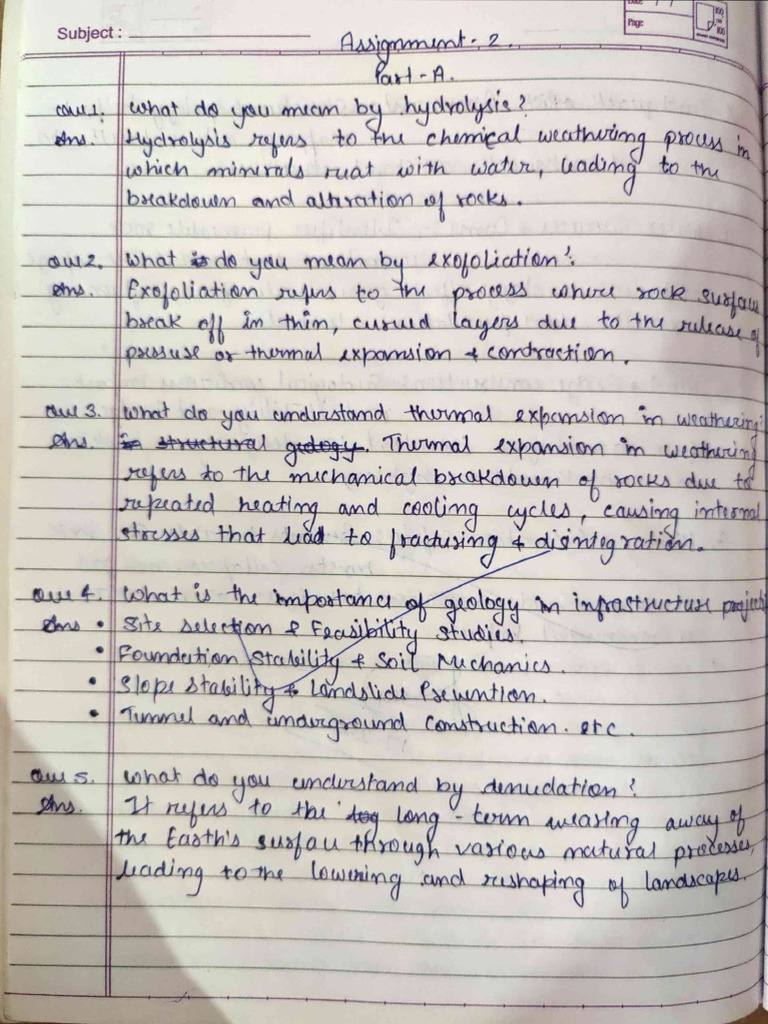 Subject :
Page
100
100
Assignment - 2.
Part - A.
Que 1. What do you mean by hydrolysis?
Ans. Hydrolysis refers to the chemical weathering process in
which minerals reat with water, leading to the
breakdown and altration of rocks.
Que 2. What is do you mean by exofoliation?
Ans. Exofoliation refers to the process where rock surface
break off in thin, curved layers due to the release of
pressure or thermal expansion & contraction.
Que 3. What do you understand thermal expansion in weathering
Ans. in structural geology. Thermal expansion in weathering
refers to the mechanical breakdown of rocks due to
repeated heating and cooling cycles, causing internal
stresses that lead to fracturing & disintegration.
Que 4. What is the importance of geology in infrastructure project
Ans • Site selection & Feasibility studies.
• Foundation Stability & Soil Mechanics.
• Slope Stability & Landslide Prevention.
• Tunnel and underground construction. etc.
Que 5. What do you understand by denudation?
Ans. It refers to the long - term wearing away of
the Earth's surface through various natural processes,
leading to the lowering and reshaping of landscapes.